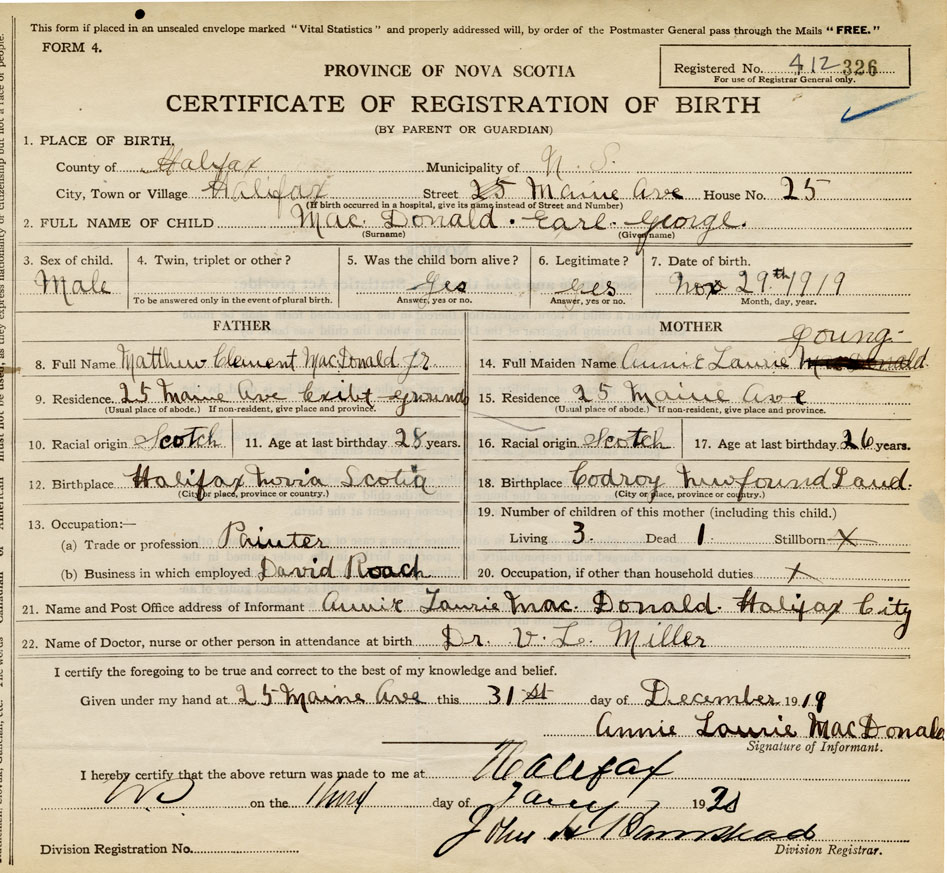 This form if placed in an unsealed envelope marked "Vital Statistics" and properly addressed will, by order of the Postmaster General pass through the Mails "FREE."
FORM 4.
Registered No. 412 326
For use of Registrar General only.
PROVINCE OF NOVA SCOTIA
CERTIFICATE OF REGISTRATION OF BIRTH
(BY PARENT OR GUARDIAN)
1. PLACE OF BIRTH.
County of Halifax Municipality of N. S.
City, Town or Village Halifax Street 25 Maine Ave House No. 25
(If birth occurred in a hospital, give its name instead of Street and Number)
2. FULL NAME OF CHILD Mac. Donald. Earl. George.
(Surname) (Given name)
3. Sex of child. 4. Twin, triplet or other? 5. Was the child born alive? 6. Legitimate? 7. Date of birth.
Male yes yes Nov 29th/1919
To be answered only in the event of plural birth. Answer, yes or no. Answer, yes or no. Month, day, year.
FATHER MOTHER
Young
8. Full Name Matthew Clement MacDonald Jr 14. Full Maiden Name Annie Laurie MacDonald.
9. Residence. 25 Maine Ave Exibt ground 15. Residence 25 Maine Ave
(Usual place of abode.) If non-resident, give place and province. (Usual place of abode.) If non-resident, give place and province.
10. Racial origin Scotch 11. Age at last birthday 28 years. 16. Racial origin Scotch 17. Age at last birthday 26 years.
12. Birthplace Halifax Novia Scotia 18. Birthplace Codroy Newfound Land.
(City or place, province or country.) (City or place, province or country.)
13. Occupation:— 19. Number of children of this mother (including this child.)
(a) Trade or profession Painter Living 3. Dead 1. Stillborn X
(b) Business in which employed David Roach 20. Occupation, if other than household duties X
21. Name and Post Office address of Informant Annie Laurie Mac. Donald. Halifax City
22. Name of Doctor, nurse or other person in attendance at birth Dr. V. L. Miller
I certify the foregoing to be true and correct to the best of my knowledge and belief.
Given under my hand at 25 Maine Ave this 31st day of December 1919
Annie Laurie MacDonald
Signature of Informant.
I hereby certify that the above return was made to me at Halifax
on the Third day of Jany 1920
John H Barnstead
Division Registration No. Division Registrar.